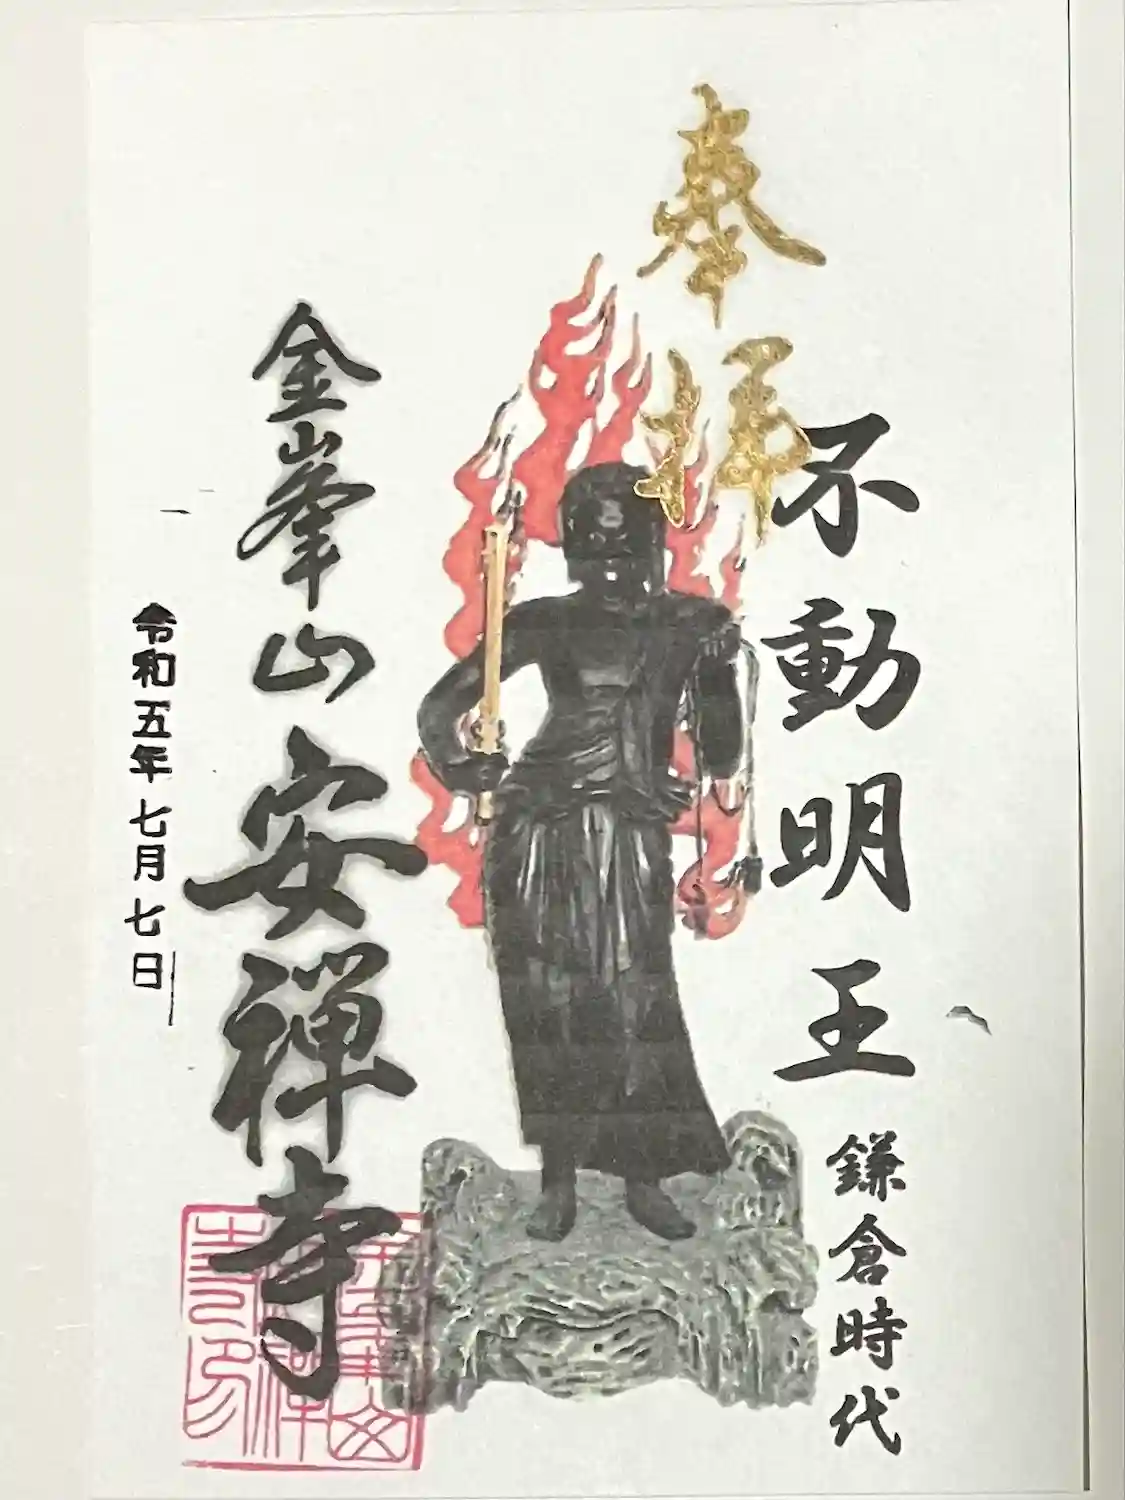 奉拝
不動明王 鎌倉時代
金峯山 安禅寺
令和五年七月七日